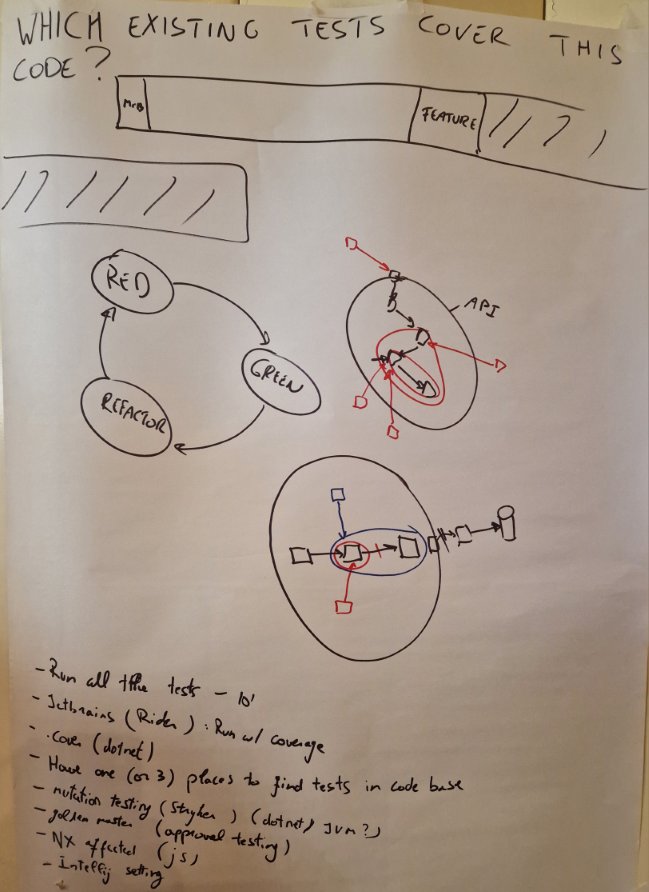 WHICH EXISTING TESTS COVER THIS
CODE?
FEATURE
RED
API
GREEN
REFACTOR
- Run all the tests - 10'
- Jetbrains (Rider) : Run w/ coverage
- .cover (dotnet)
- Have one (or 3) places to find tests in code base
- mutation testing (Stryker) (dotnet) JVM?)
- golden master (approval testing)
- NX affected (js)
- Intellij setting